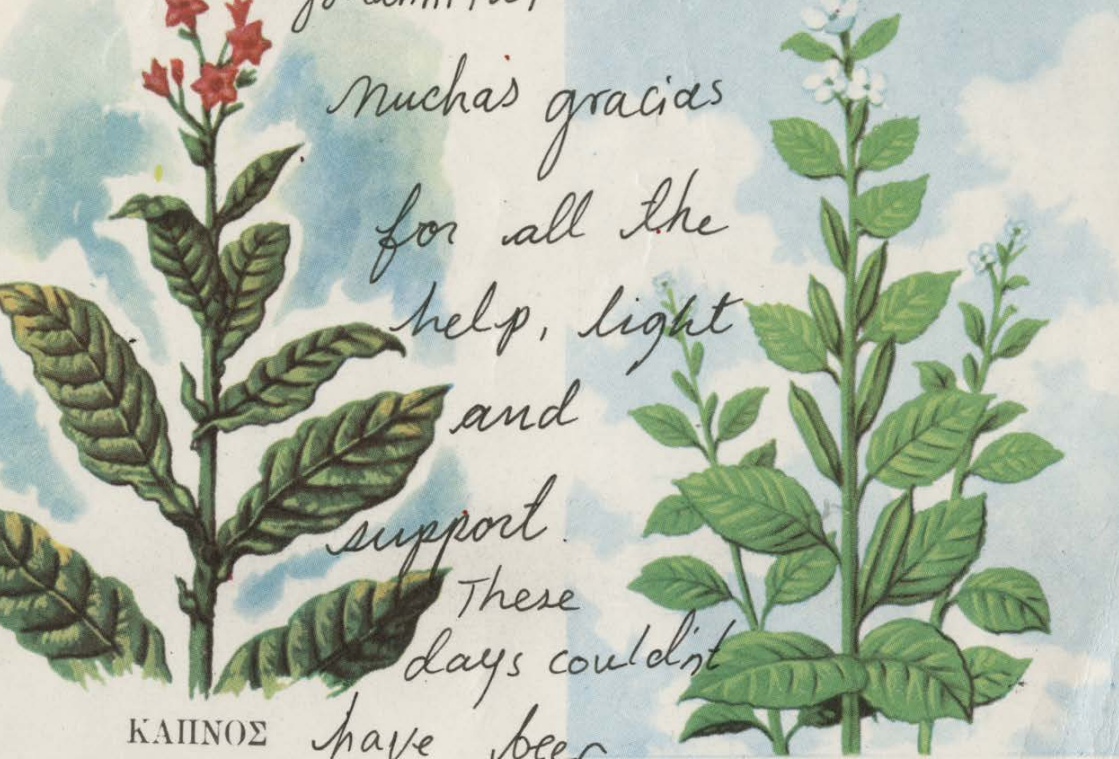 Muchas gracias
for all the
help, light
and
support.
These
days couldn't
have been
ΚΑΠΝΟΣ